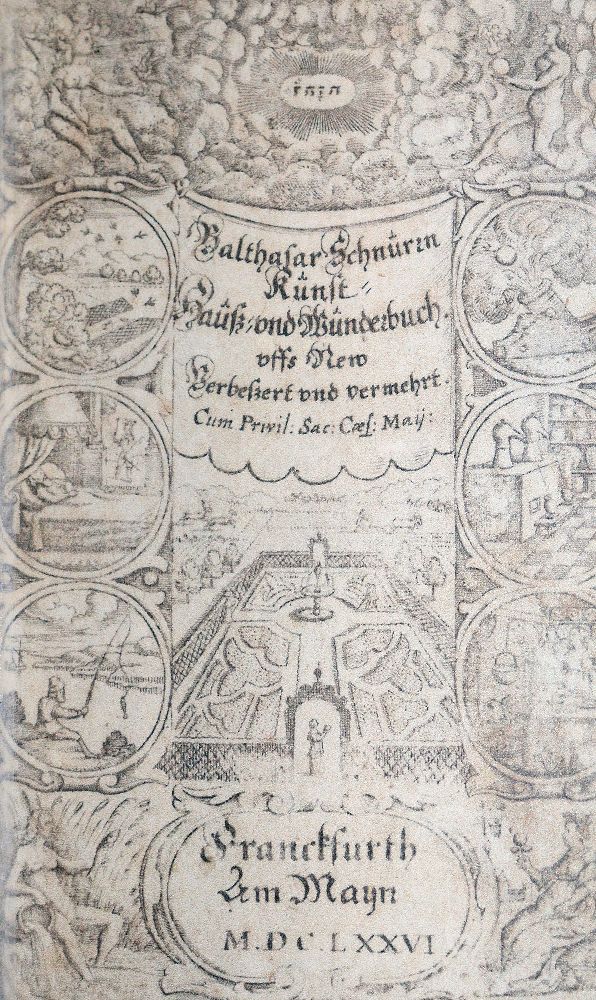 יהוה
Balthasar Schnürın
Künst-
Hauß-vnd Wünderbuch.
vffs New
Verbeßert vnd vermehrt.
Cum Privil: Sac: Cæs: Maij:
Franckfurth
Am Mayn
M.DC.LXXVI